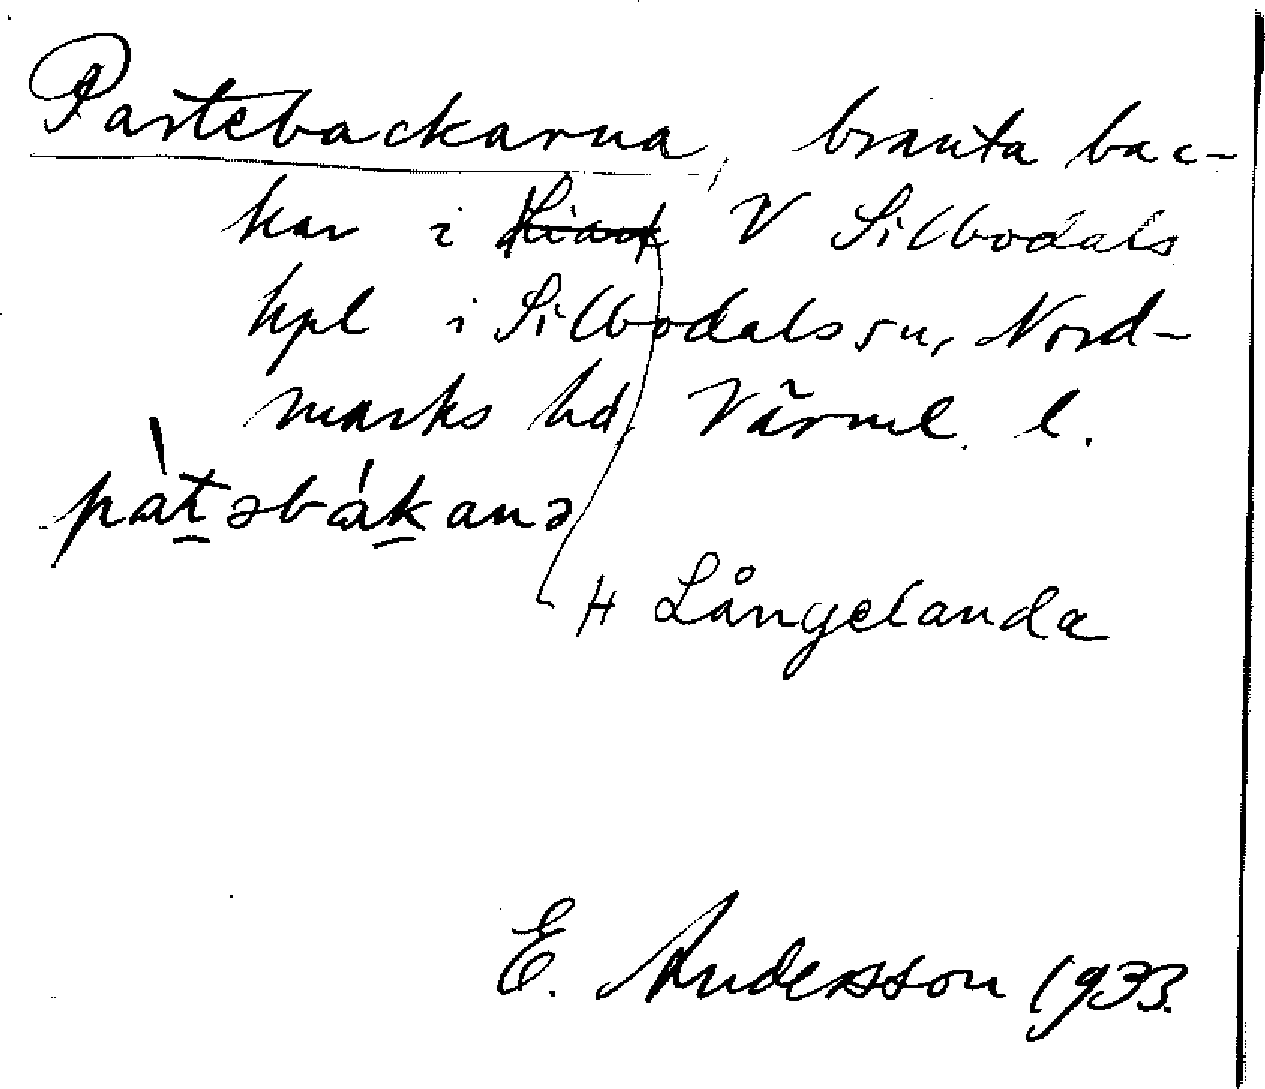 Partebackarna, branta bac-
kar i V Silbodals
kpl i Silbodals sn, Nord-
marks hd, Värml. l.
pàt̠əbák̠anə
H Långelanda
E. Andersson 1933.